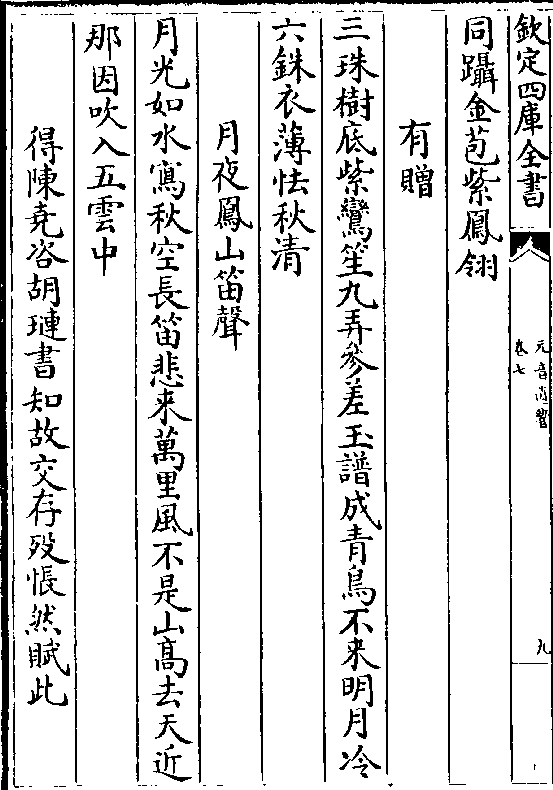 欽定四庫全書
元音遺響
卷七
九
同躡金苞紫鳳翎
有贈
三珠樹底紫鸞笙九弄參差玉譜成青鳥不来明月冷
六銖衣薄怯秋清
月夜鳳山笛聲
月光如水寫秋空長笛悲来萬里風不是山髙去天近
那因吹入五雲中
得陳堯咨胡璉書知故交存殁悵然賦此